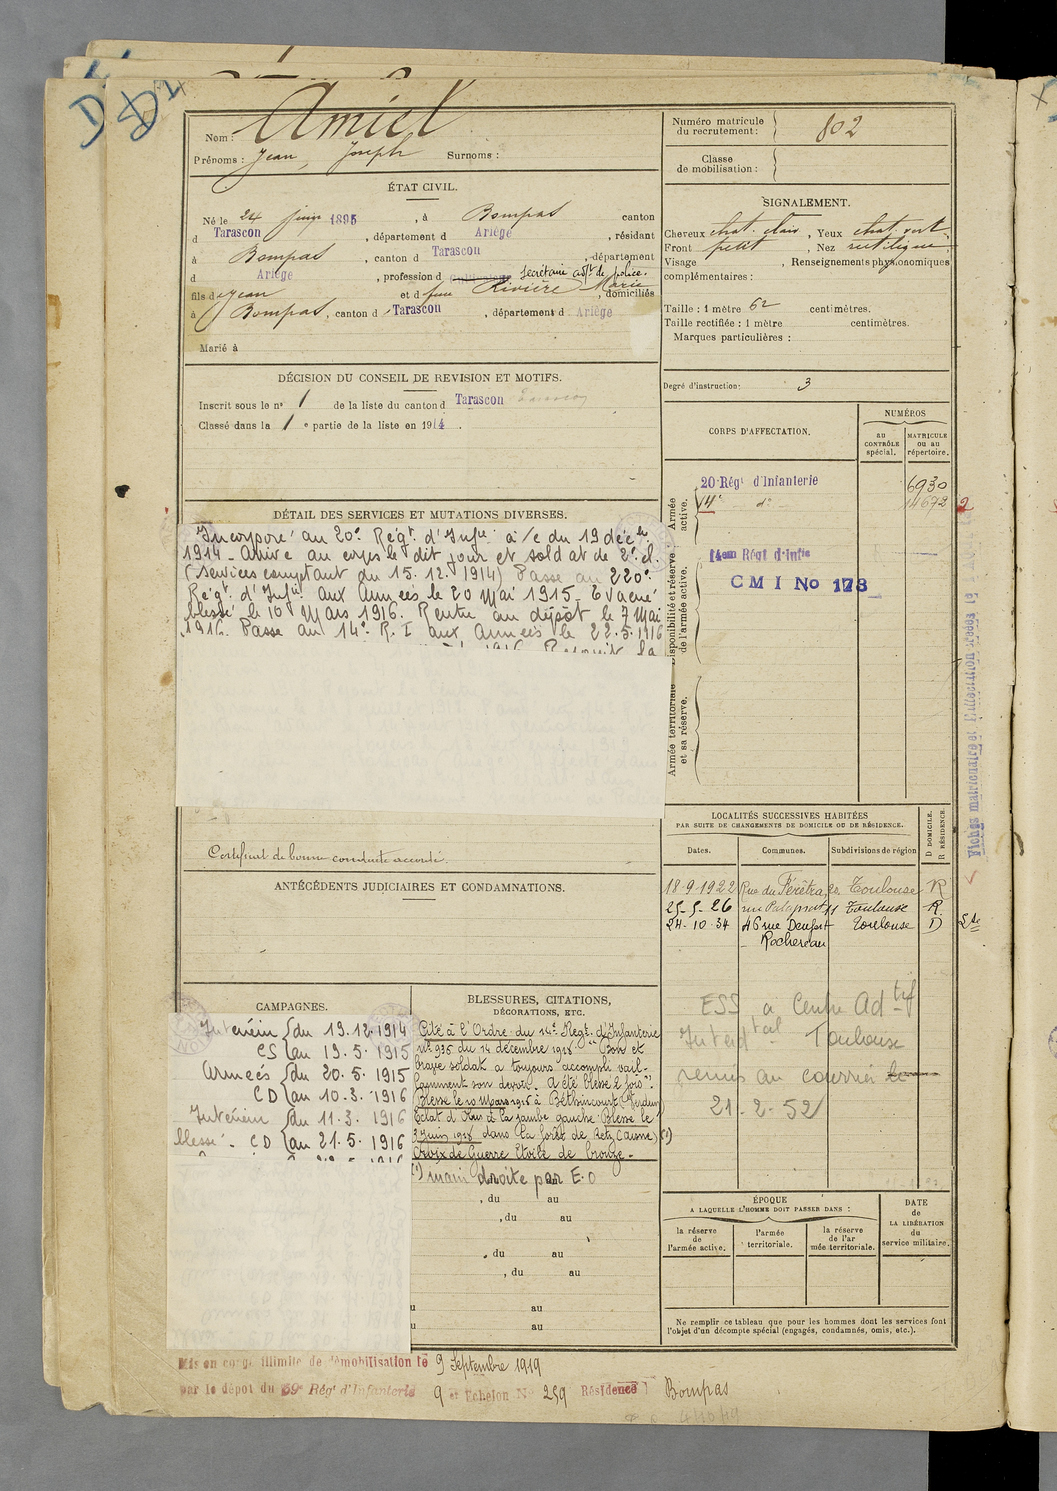 Nom : Amiel
Prénoms : Jean, Joseph Surnoms :
ÉTAT CIVIL.
Né le 24 juin 1895, à Bompas canton
d Tarascon, département d Ariège, résidant
à Bompas, canton d Tarascon, département
d Ariège, profession d Cultivateur secrétaire adjt de police.
fils de Jean et de feue Rivière Marie, domiciliés
à Bompas, canton d Tarascon, département d Ariège
Marié à
DÉCISION DU CONSEIL DE REVISION ET MOTIFS.
Inscrit sous le n° 1 de la liste du canton d Tarascon
Classé dans la 1e partie de la liste en 1914.
DÉTAIL DES SERVICES ET MUTATIONS DIVERSES.
Incorporé au 20e Régt. d'Infie à/c du 19 décbre
1914 - Arrivé au corps le dit jour et soldat de 2e cl.
(Services comptant du 15.12.1914) Passé au 220e
Régt. d'Infie aux Armées le 20 Mai 1915 - Evacué
blessé le 10 Mars 1916. Rentré au dépôt le 7 Mai
1916. Passé au 14e R.I aux Armées le 22.5.1916
Certificat de bonne conduite accordé.
ANTÉCÉDENTS JUDICIAIRES ET CONDAMNATIONS.
CAMPAGNES.
Intérieur { du 19.12.1914
CS { au 19.5.1915
Armées { du 20.5.1915
CD { au 10.3.1916
Intérieur { du 11.3.1916
blessé - CD { au 21.5.1916
BLESSURES, CITATIONS,
DÉCORATIONS, ETC.
Cité à l'Ordre du 14e Régt. d'Infanterie
n° 995 du 14 décembre 1918 "Bon et
brave soldat a toujours accompli vail-
lamment son devoir. A été blessé 2 fois".
Blessé le 10 Mars 1916 à Béthincourt (Verdun)
Eclat d'Obus à la jambe gauche. Blessé le
3 Juin 1918 dans la forêt de Retz (Aisne) (1)
Croix de Guerre Etoile de bronze -
(1) main droite par E.O
, du au
, du au
, du au
, du au
u au
u au
Mis en congé illimité de démobilisation le 9 Septembre 1919
par le dépôt du 59e Régt d'Infanterie 9 et Echelon N° 259 Résidence Bompas
Numéro matricule
du recrutement : 802
Classe
de mobilisation :
SIGNALEMENT.
Cheveux chat. clair, Yeux chat. vert.
Front petit, Nez rectiligne
Visage , Renseignements physionomiques
complémentaires :
Taille : 1 mètre 62 centimètres.
Taille rectifiée : 1 mètre centimètres.
Marques particulières :
Degré d'instruction : 3
CORPS D'AFFECTATION.
NUMÉROS
au
CONTRÔLE
spécial.
MATRICULE
OU AU
répertoire.
Armée
active.
20 Régt d'Infanterie 6930
14e do 14672 2
Disponibilité et réserve
de l'armée active.
14em Régt d'Infie
CMI No 178
Armée territoriale
et sa réserve.
LOCALITÉS SUCCESSIVES HABITÉES
PAR SUITE DE CHANGEMENTS DE DOMICILE OU DE RÉSIDENCE.
Dates. Communes. Subdivisions de région D DOMICILE. R RÉSIDENCE.
18-9-1922 Rue du Férétra 20 Toulouse R
25-5-26 rue Palaprat 11 Toulouse R.
24-10-34 46 rue Denfert Toulouse D
Rochereau
ESS a Centre Adtif
Intendtial Toulouse
remis au courrier le
21-2-52
ÉPOQUE
A LAQUELLE L'HOMME DOIT PASSER DANS :
la réserve
de
l'armée active.
l'armée
territoriale.
la réserve
de l'ar
mée territoriale.
DATE
de
LA LIBÉRATION
du
service militaire.
Ne remplir ce tableau que pour les hommes dont les services font
l'objet d'un décompte spécial (engagés, condamnés, omis, etc.).